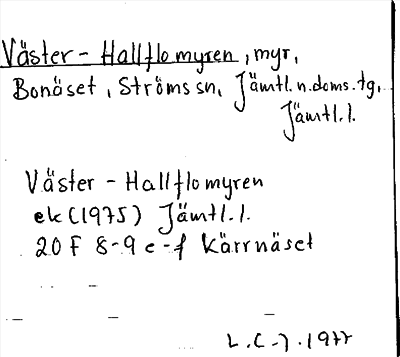 Väster-Hallflomyren, myr,
Bonäset, Ströms sn, Jämtl.n.doms.tg,
Jämtl.l.
Väster-Hallflomyren
ek (1975) Jämtl.l.
20 F 8-9 e-f Kärrnäset
L.C-J. 1977